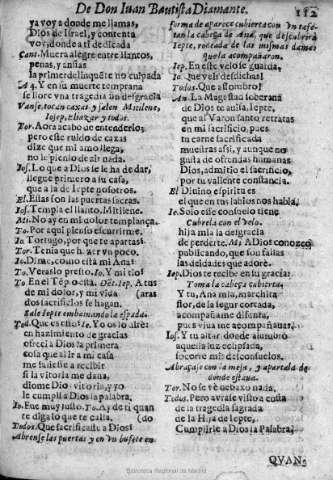 De Don Iuan Bautista Diamante.
ya voy a donde me llamas,
Dios de Israel, y contenta
voy, donde a ti dedicada
Cant. Muera alegre entre llantos,
penas, y ansias
la primer delinquẽte no culpada
A 4. Y en su muerte temprana
se llore vna tragedia sin desgracia
Vanse, tocan caxas, y salen Mitilene,
Iosep, eliazar, y todos.
Tor. Aora acabo de entenderlo;
pero esse ruido de caxas
dize que mi amo llega,
no le pienso de
Ios. Lo que a Dios se le ha de dar,
llegue primero a su casa,
que a la de Iepte nosotros.
El. Estas son las puertas sacras.
Ios. Templa el llanto, Mitilene.
Mi. No ay en mi dolor templança.
To. Por aqui pienso escurrirme.
In. Tortugo, por que te apartas?
Tor. Tenia que hazer vn poco.
In. Dime, como està mi Ana?
To. Veràslo presto. Io. Y mi tio?
To. En el Tẽplo està. Dẽt. Iep. A tus
de mi dolor, y mi vida (aras
dos sacrificios se hagan.
Sale Iepte embainando la espada.
Tod. Que es esto? Io. Yo os lo dirè:
en hazimiento de gracias
ofreci a Dios la primera
cosa que al ir a mi casa
me saliesse a recibir
si la vitoria me dava,
diome Dios vitoria, y yo
le cumpli a Dios la palabra.
Io. Fue muy justo. To. Ay de ti quan
te diga lo que te calla. (do
Todos. Que sacrificaste a Dios?
Abrense las puertas y en vn bufete en
forma de aparece cubierta con vn tafe-
tan la cabeça de Ana, que descubrirà
Iepte, rodeada de las mismas damas
que la acompañaron.
Iep. En esse velo se guarda,
Io. Que velo es?
Todos. Que assombro!
An. La Magestad soberana
de Dios te auisa, Iepte,
que al Varon santo retratas
en mi sacrificio, pues
tu carne sacrificada
muestras assi, y aunque no
gusta de ofrendas humanas
Dios, admitiò el sacrificio,
por tu valiente constancia.
El Diuino espiritu es
el que en tus labios nos habla.
Io. Solo esse consuelo tiene
Cubrela con el velo.
hija mia la desgracia
de perderte. Ms. A Dios conozco
publicando, que son falsas
las deidades que adorè.
Iep. Dios te recibe en su gracia.
Toma la cabeça cubierta.
Y tu, Ana mia, marchita
flor, de la segur cortada,
acompañame difunta,
pues viua me acompañauas,
Ios. Y tu altar donde assombro
aquella luz eclipsada,
socorre mis desconsuelos.
Abraçase con la mesa, y apartala de
donde estaua.
Tor. No se vè debaxo nada.
Todos. Pero avràse visto a costa
de la tragedia sagrada
de la Hija de Iepte,
Cumplirle a Dios la Palabra.
QVAN-
Biblioteca Regional de Madrid